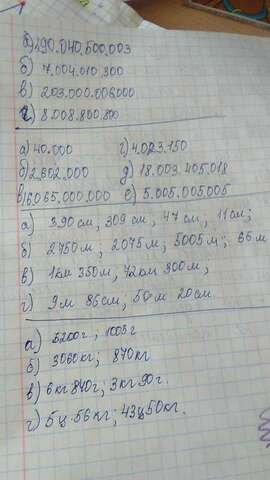 а) 290.040.500.003
б) 7.004.010.300
в) 203.000.006000
г) 8.008.800.800
а) 40.000 г) 4.023.150
б) 2.602.000 д) 18.003.405.018
в) 6065.000.000 е) 5.005.005.005
а) 390 см, 309 см, 47 см, 11 см;
б) 2750 м; 2075 м; 5005 м; 66 м
в) 1 км 350 м, 72 км 300 м;
г) 9 м 86 см, 50 м 20 см.
а) 5200 г; 1005 г
б) 3060 кг; 870 кг
в) 6 кг 840 г; 3 кг 90 г.
г) 5 ц 56 кг; 43 ц 50 кг.